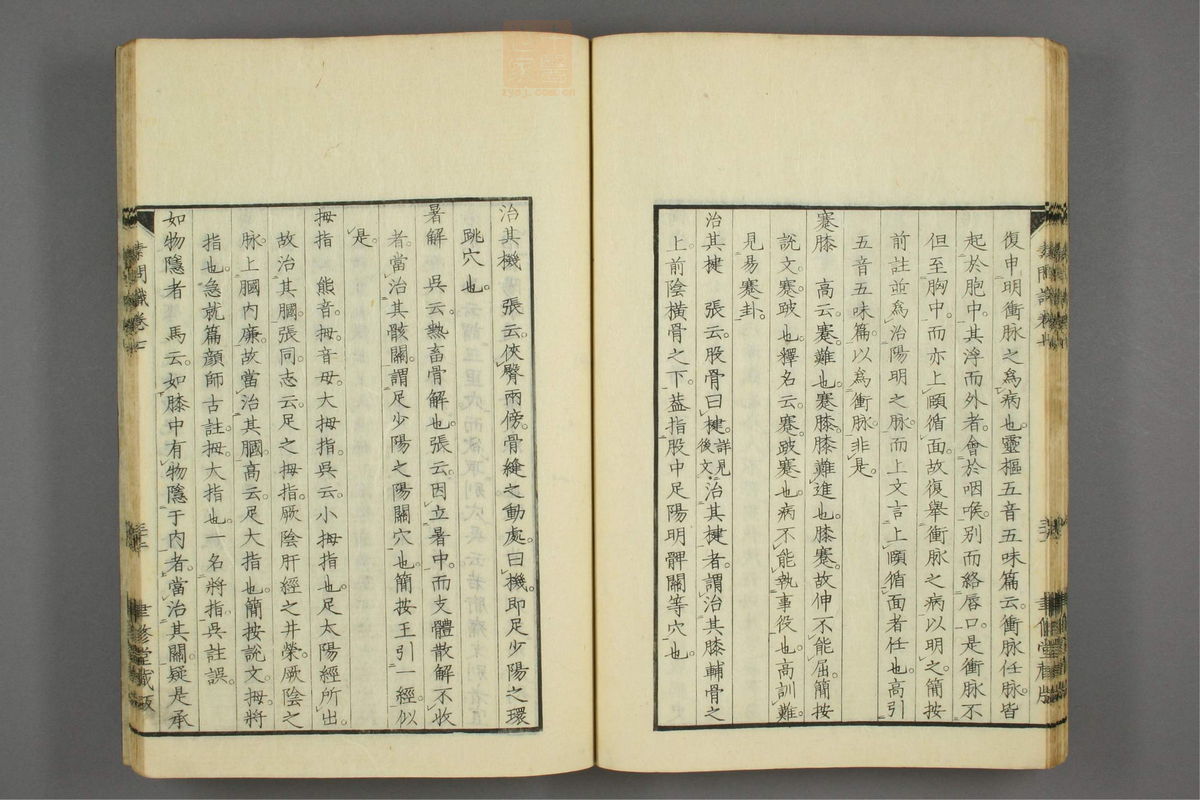 復申明衝脉之爲病也。靈樞五音五味篇云。衝脉任脉。皆
起於胞中。其浮而外者。會於咽喉。別而絡唇口。是衝脉不
但至胸中。而亦上頤循面。故復舉衝脉之病以明之。簡按
前註並爲治陽明之脉。而上文言上頤循面者任也。高引
五音五味篇。以爲衝脉。非是。
蹇膝　高云。蹇。難也。蹇膝。膝難進也。膝蹇。故伸不能屈。簡按
說文。蹇。跛也。釋名云。蹇。跛蹇也。病不能執事役也。高訓難。
見易蹇卦。
治其楗　張云。股骨曰楗。詳見後文。治其楗者。謂治其膝輔骨之
上。前陰橫骨之下。蓋指股中足陽明髀關等穴也。
治其機　張云。俠臀兩傍。骨縫之動處。曰機。即足少陽之環
跳穴也。
暑解　吳云。熱畜骨解也。張云。因立暑中。而支體散解不收
者。當治其骸關。謂足少陽之陽關穴也。簡按王引一經。似
是。
拇指　熊音。拇。音母。大拇指。吳云。小拇指也。足太陽經所出。
故治其膕。張同。志云。足之拇指。厥陰肝經之井滎。厥陰之
脉。上膕內廉。故當治其膕。高云。足大指也。簡按說文。拇。將
指也。急就篇顏師古註。拇。大指也。一名將指。吳註誤。
如物隱者　馬云。如膝中有物隱于內者。當治其關。疑是承
素問識卷七
聿修堂藏版